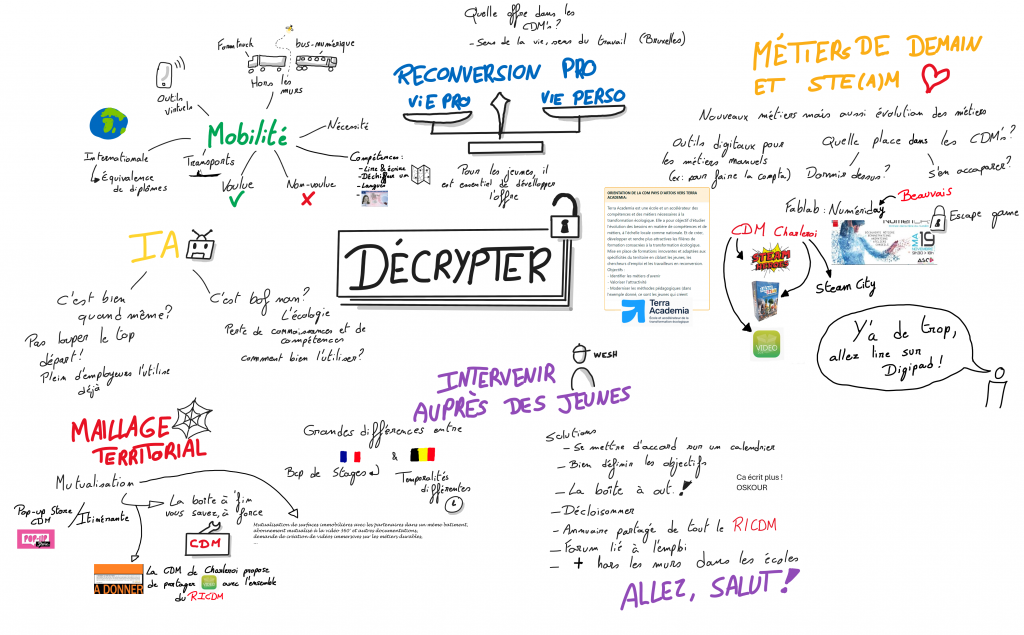 Quelle offre dans les
CDM's?
- Sens de la vie, sens du travail (Bruxelles)
RECONVERSION PRO
VIE PRO
VIE PERSO
Pour les jeunes, il
est essentiel de développer
l'offre
Formtruck
bus-numérique
Hors les
murs
Outils
virtuels
Mobilité
Nécessité
Internationale
↳ Équivalence
de diplômes
Transports
Voulue
Non-voulue
Compétences:
- Lire & écrire
- Déchiffrer un
- Langues
MÉTIERS DE DEMAIN
ET STE(A)M
Nouveaux métiers mais aussi évolution des métiers
Outils digitaux pour
les métiers manuels
(ex: pour faire la compta)
Quelle place dans les CDM's?
Dormir dessus?
s'en accaparer?
Fablab: Numériday
Beauvais
Escape game
MA
19
9H30 > 16H
ASCO
CDM Charleroi
STEAM
HEROES
Steam City
VIDEO
ORIENTATION DE LA CDM PAYS D'ARTOIS VERS TERRA
ACADEMIA:
Terra Academia est une école et un accélérateur des
compétences et des métiers nécessaires à la
transformation écologique. Elle a pour objectif d'étudier
l'évolution des besoins en matière de compétences et de
métiers, à l'échelle locale comme nationale. Et de créer,
développer et rendre plus attractives les filières de
formation consacrées à la transformation écologique.
Mise en place de formations innovantes et adaptées aux
spécificités du territoire en ciblant les jeunes, les
chercheurs d'emploi et les travailleurs en reconversion.
Objectifs :
- Identifier les métiers d'avenir
- Valoriser l'attractivité
- Moderniser les méthodes pédagogiques dans
l'exemple donné, ce sont les jeunes qui créent
Terra
Academia
École et accélérateur de la
transformation écologique
Y'a de trop,
allez lire sur
Digipad!
DÉCRYPTER
IA
C'est bien
quand même?
Pas louper le top
départ!
Plein d'employeurs l'utilise
déjà
C'est bof non?
L'écologie
Perte de connaissances et de
compétences
comment bien l'utiliser?
WESH
INTERVENIR
AUPRÈS DES JEUNES
Grandes différences entre
&
Bcp de Stages
Temporalités
différentes
Solutions
- Se mettre d'accord sur un calendrier
- Bien définir les objectifs
- La boîte à out.!
- Décloisonner
- Annuaire partagé de tout le RICDM
- Forum lié à l'emploi
- + hors les murs dans les écoles
Ca écrit plus !
OSKOUR
ALLEZ, SALUT!
MAILLAGE
TERRITORIAL
Mutualisation
Pop-up Store
CDM
POP-UP
Store
Itinérante
La boîte à "fin
vous savez, à force
CDM
Mutualisation de surfaces immobilières avec les partenaires dans un mêmo batiment,
abonnement mutualisé à la vidéo 360° et autres documentations,
demande de création de vidéos immersives sur les métiers durables,
...
A DONNER
La CDM de Charleroi propose
de partager VIDEO avec l'ensemble
du RICDM